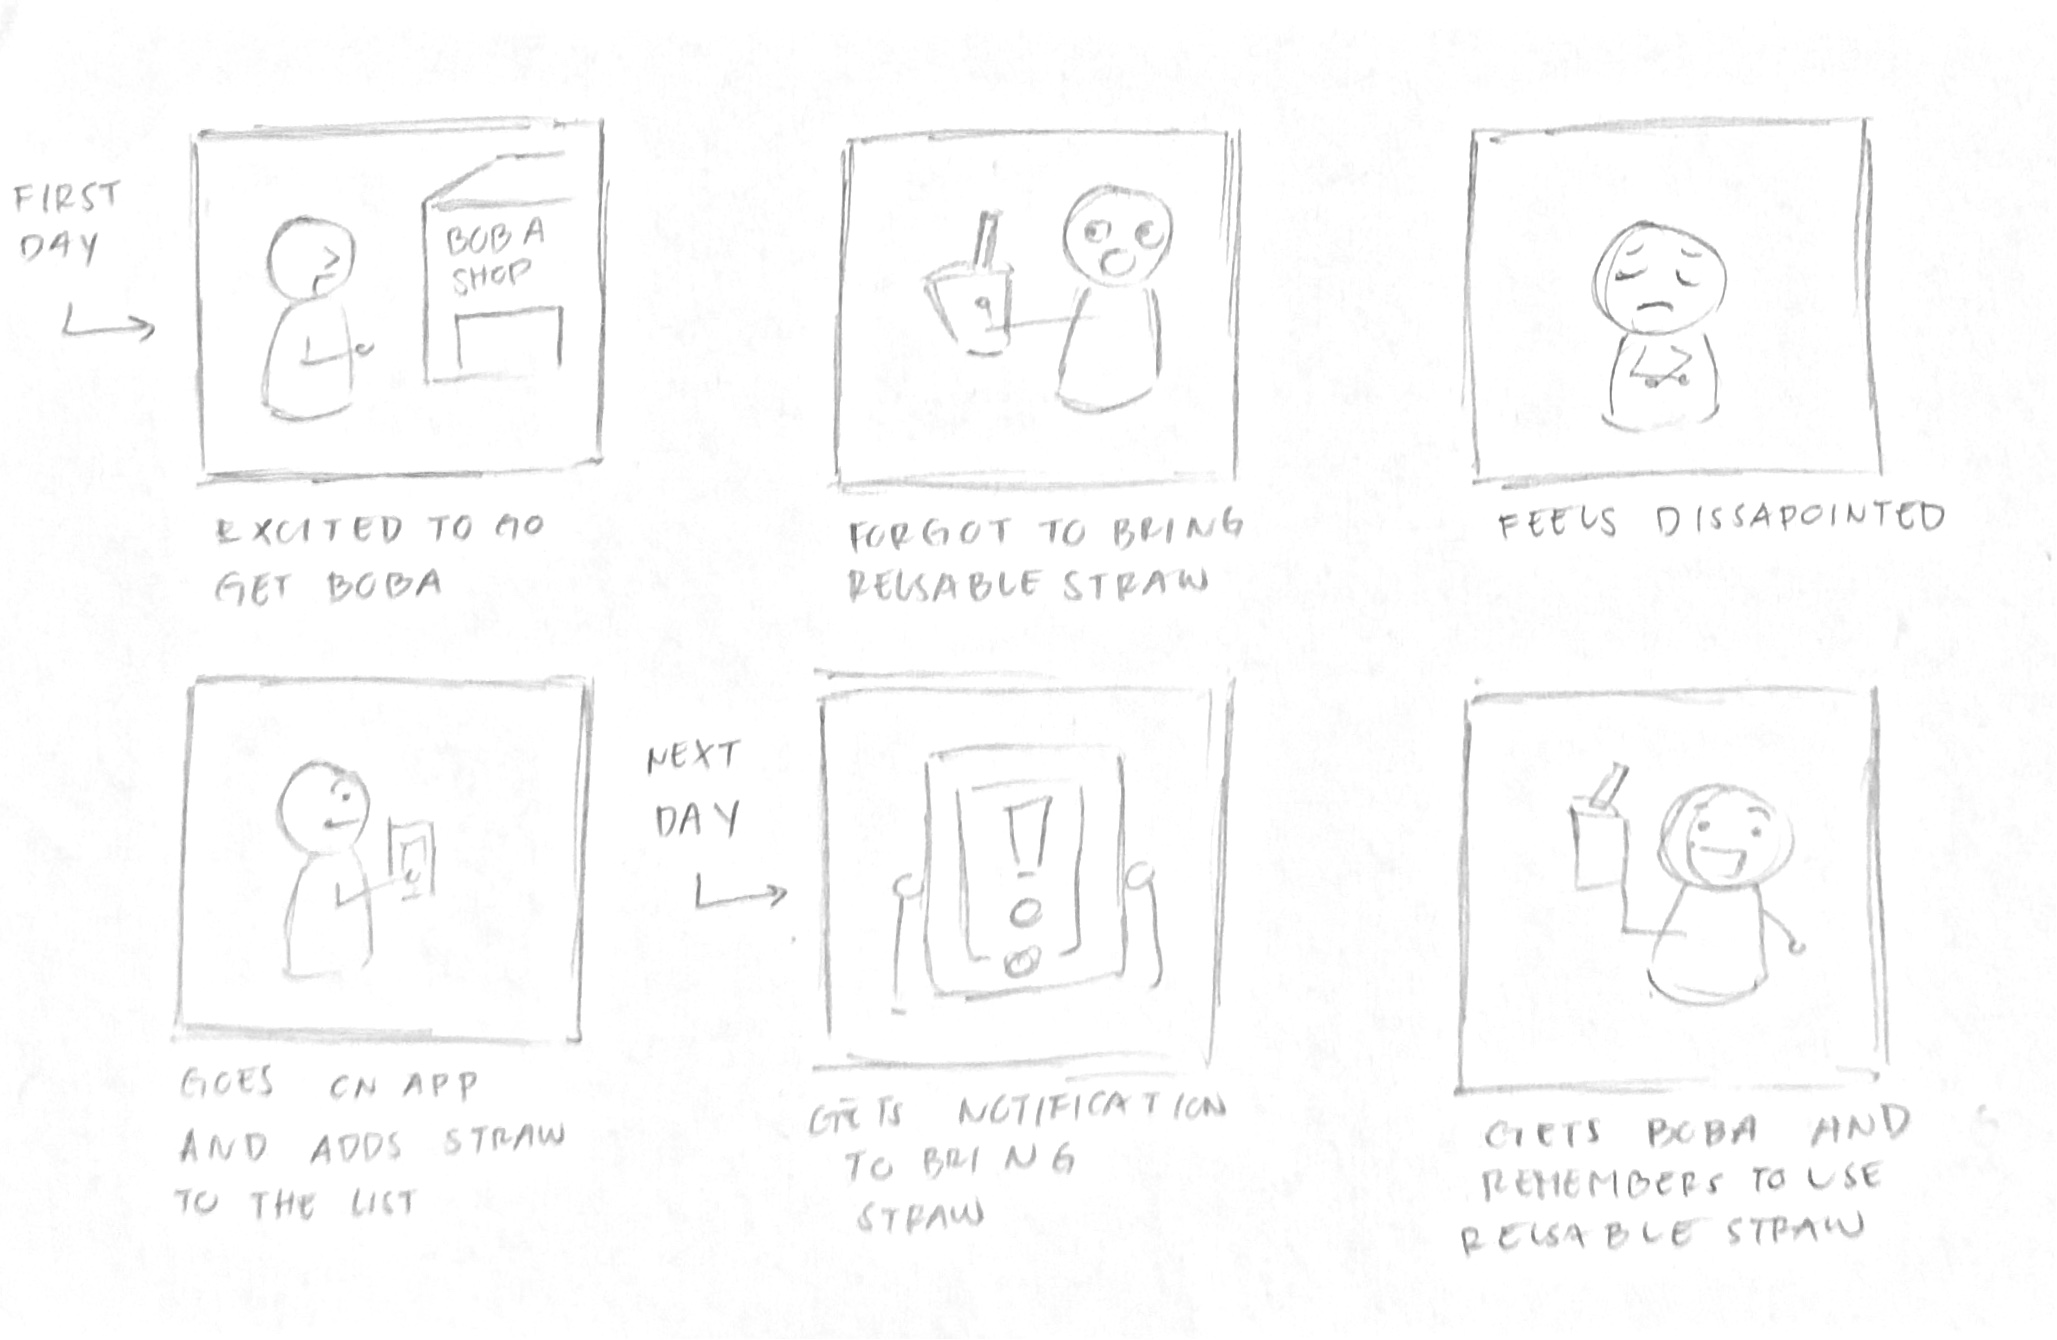 FIRST
DAY
BOBA
SHOP
EXCITED TO GO
GET BOBA
FORGOT TO BRING
REUSABLE STRAW
FEELS DISSAPOINTED
GOES ON APP
AND ADDS STRAW
TO THE LIST
NEXT
DAY
GETS NOTIFICATION
TO BRING
STRAW
GETS BOBA AND
REMEMBERS TO USE
REUSABLE STRAW